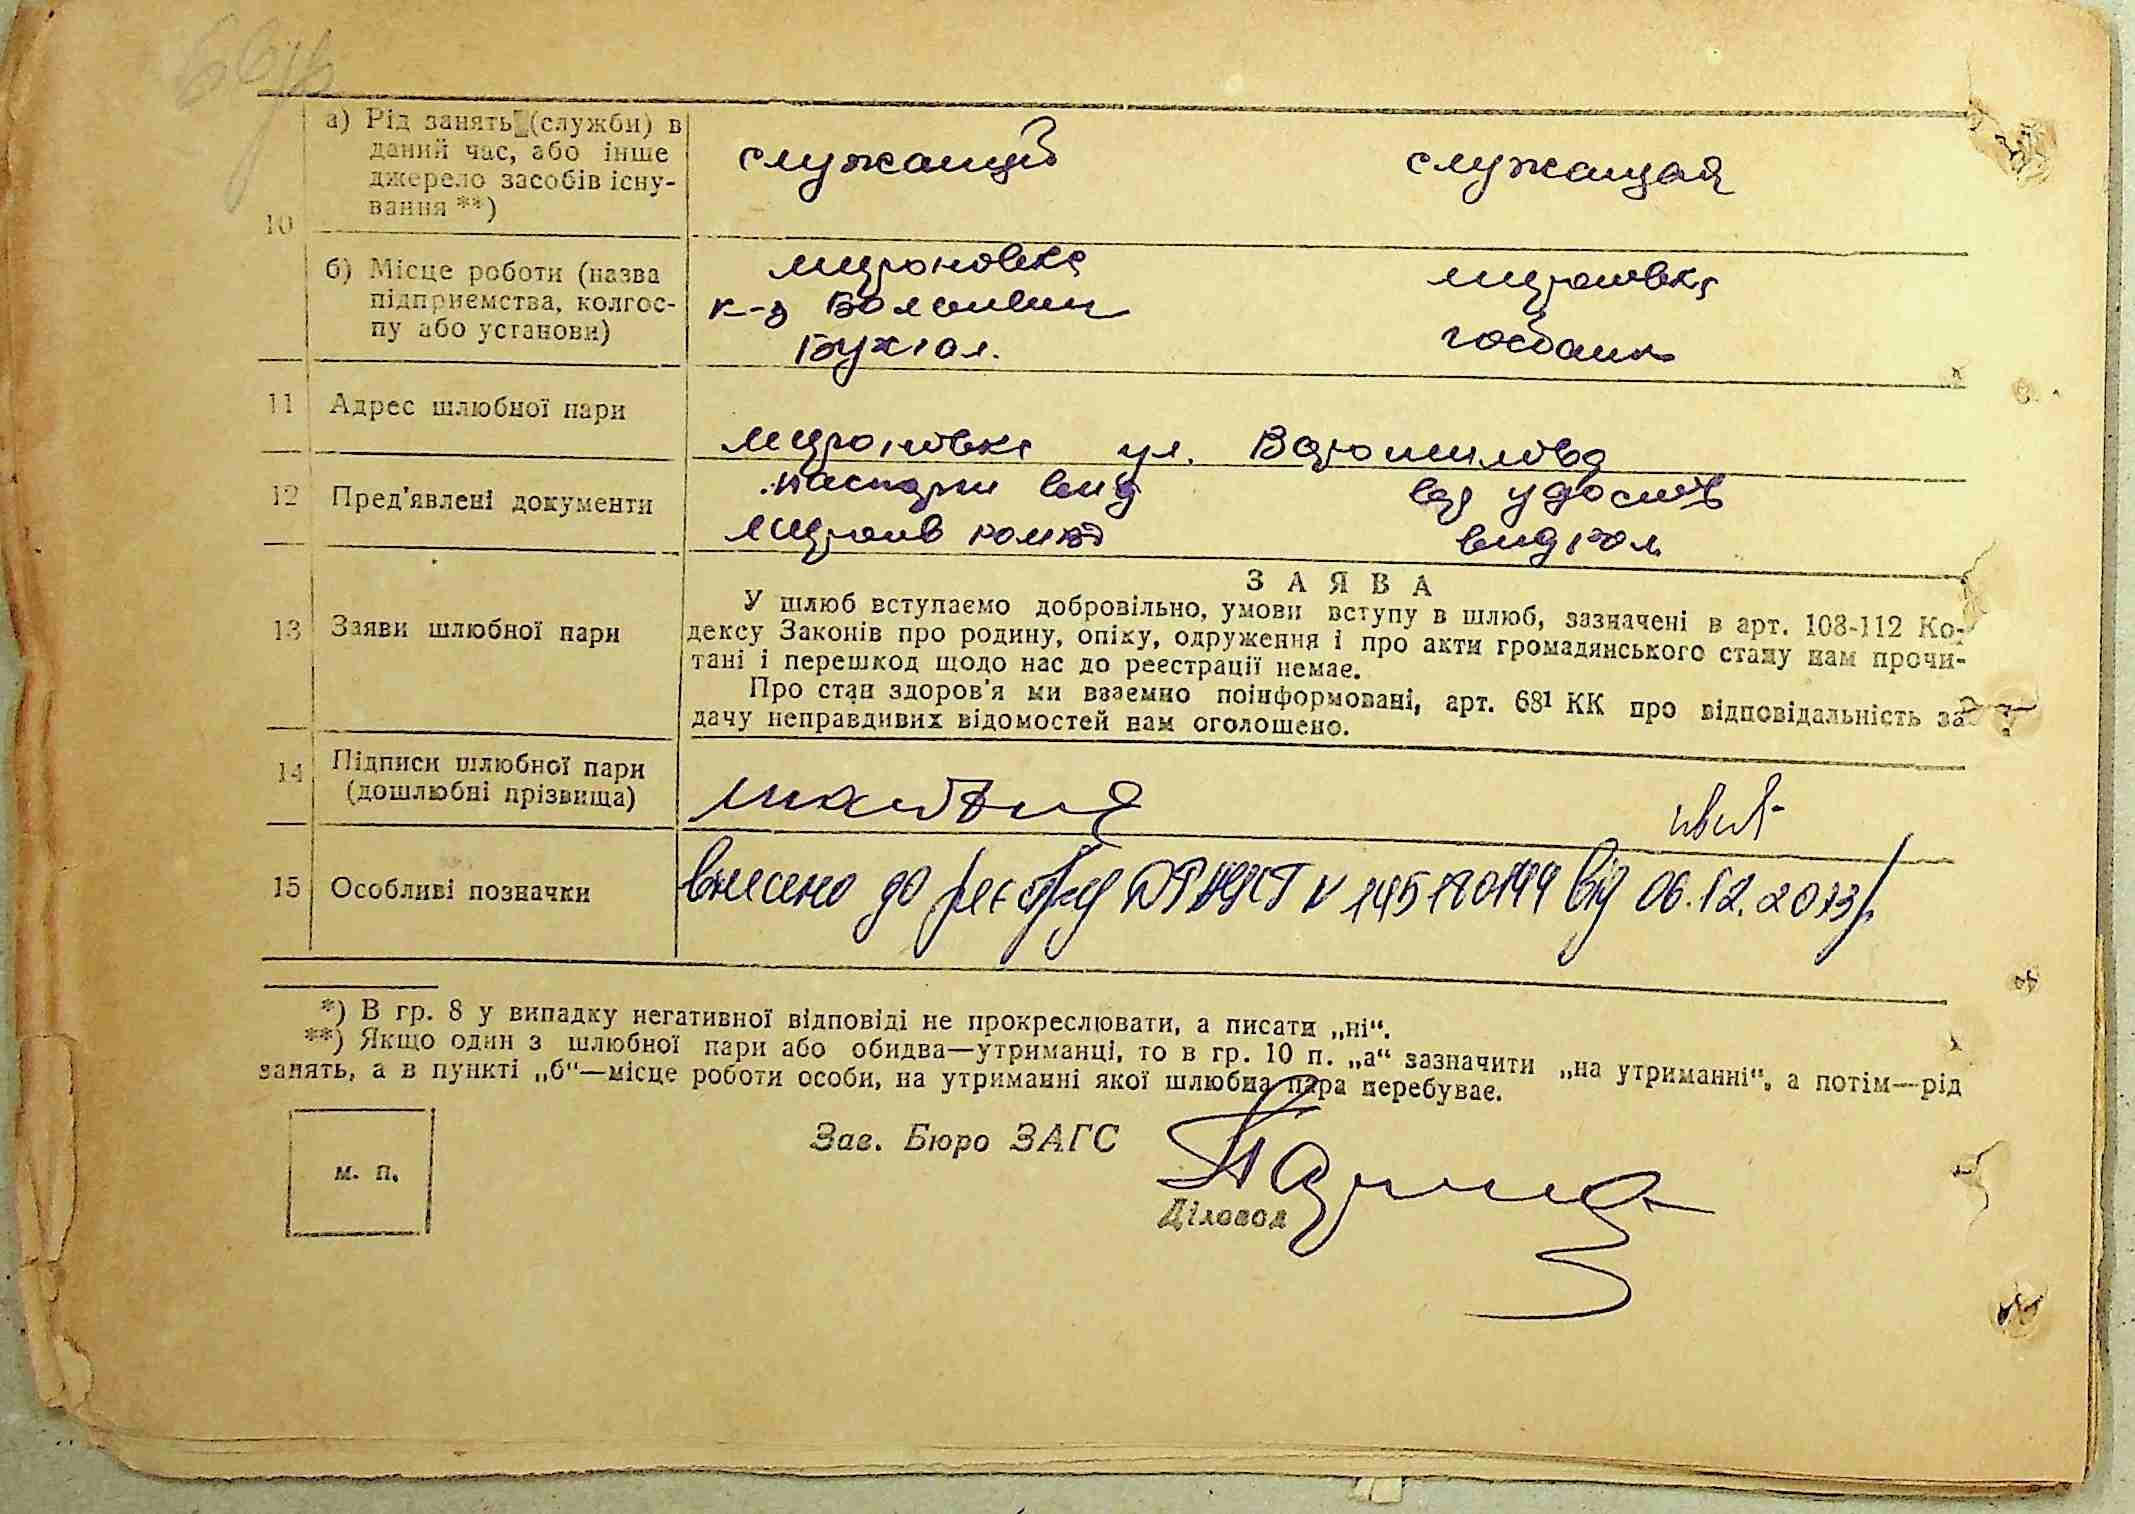 а) Рід занять (служби) в
даний час, або інше
джерело засобів існу-
вання **)
служащий служащая
10
б) Місце роботи (назва
підприємства, колгос-
пу або установи)
мироновка мироновка
к-з Большевик
Бухгал. госбанк
11 Адрес шлюбної пари
мироновка ул. Ворошилова
12 Пред'явлені документи
паспорт вид
вид
13 Заяви шлюбної пари
ЗАЯВА
У шлюб вступаємо добровільно, умови вступу в шлюб, зазначені в арт. 108-112 Ко-
дексу Законів про родину, опіку, одруження і про акти громадянського стану нам прочи-
тані і перешкод щодо нас до реєстрації немає.
Про стан здоров'я ми взаємно поінформовані, арт. 68¹ КК про відповідальність за
дачу неправдивих відомостей нам оголошено.
14 Підписи шлюбної пари
(дошлюбні прізвища)
15 Особливі позначки
внесено до реєстру ДРАЦСГ № від 06.12.2013р.
*) В гр. 8 у випадку негативної відповіді не прокреслювати, а писати „ні“.
**) Якщо один з шлюбної пари або обидва—утриманці, то в гр. 10 п. „а“ зазначити „на утриманні“, а потім—рід
занять, а в пункті „б“—місце роботи особи, на утриманні якої шлюбна пара перебуває.
м. п.
Зав. Бюро ЗАГС
Діловод